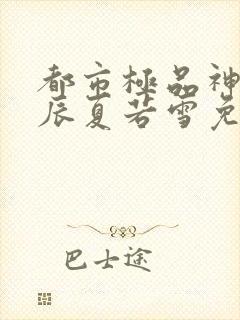 都市極品神
辰夏若雪免
巴士途